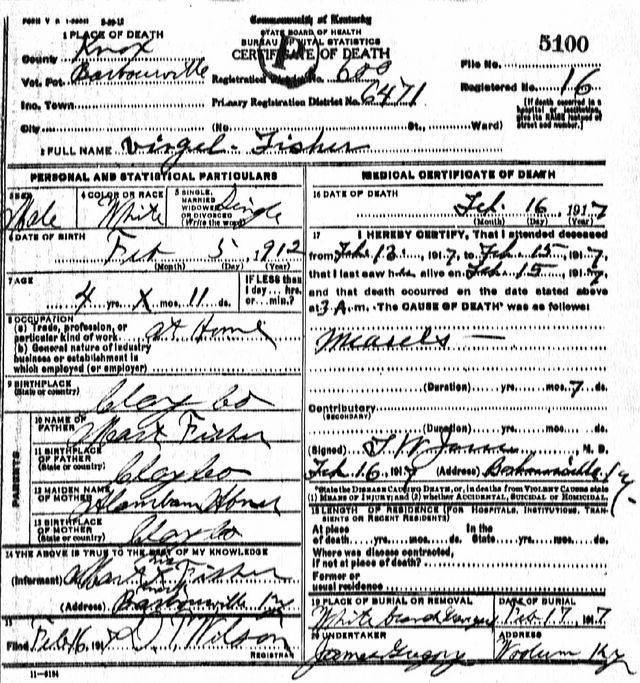 Commonwealth of Kentucky
STATE BOARD OF HEALTH
BUREAU OF VITAL STATISTICS
CERTIFICATE OF DEATH
5100
1 PLACE OF DEATH
County Knox
File No.
Vot. Pct. Barbourville
Registration District No. 600
Registered No. 16
Inc. Town
Primary Registration District No. 6471
(If death occurred in a hospital or institution, give its NAME instead of street and number.)
City (No. St., Ward)
2 FULL NAME Virgel Fisher
PERSONAL AND STATISTICAL PARTICULARS
3 SEX Male
4 COLOR OR RACE White
5 SINGLE, MARRIED, WIDOWED OR DIVORCED (Write the word) Single
6 DATE OF BIRTH Feb 5, 1912
(Month) (Day) (Year)
7 AGE 4 yrs. X mos. 11 ds.
IF LESS than 1 day... hrs. or... min.?
8 OCCUPATION
(a) Trade, profession, or particular kind of work at Home
(b) General nature of industry business or establishment in which employed (or employer)
9 BIRTHPLACE
(State or country) Clay Co
PARENTS
10 NAME OF FATHER Mart Fisher
11 BIRTHPLACE OF FATHER
(State or country) Clay Co
12 MAIDEN NAME OF MOTHER
13 BIRTHPLACE OF MOTHER
(State or country) Clay Co
14 THE ABOVE IS TRUE TO THE BEST OF MY KNOWLEDGE
(Informant) Mart Fisher
(Address) Barbourville Ky
15
Filed Feb 16, 1917 D T Wilson
REGISTRAR
11-5194
MEDICAL CERTIFICATE OF DEATH
16 DATE OF DEATH
Feb. 16, 1917
(Month) (Day) (Year)
17 I HEREBY CERTIFY, That I attended deceased
from Feb. 13, 1917, to Feb 15, 1917,
that I last saw him alive on Feb 15, 1917
and that death occurred on the date stated above
at 3 A.m. The CAUSE OF DEATH* was as follows:
Measels
(Duration) yrs. mos. 7 ds.
Contributory
(SECONDARY)
(Duration) yrs. mos. ds.
(Signed) M. D.
Feb 16, 1917 (Address) Barbourville Ky.
*State the DISEASE CAUSING DEATH, or, in deaths from VIOLENT CAUSES state (1) MEANS OF INJURY; and (2) whether ACCIDENTAL, SUICIDAL or HOMICIDAL
18 LENGTH OF RESIDENCE (FOR HOSPITALS, INSTITUTIONS, TRANSIENTS OR RECENT RESIDENTS)
At place of death yrs. mos. ds. In the State yrs. mos. ds.
Where was disease contracted,
if not at place of death?
Former or
usual residence
19 PLACE OF BURIAL OR REMOVAL
DATE OF BURIAL
Feb 17, 1917
20 UNDERTAKER
James Gregory
ADDRESS
Woolum Ky